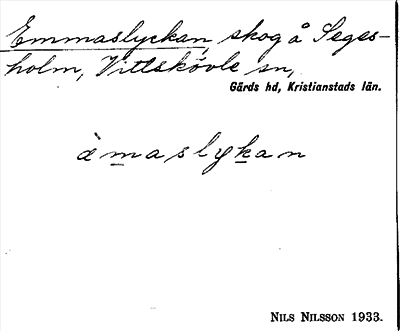 Emmaslyckan, skog å Seges-
holm, Vittskövle sn,
Gärds hd, Kristianstads län.
àmaslykan
NILS NILSSON 1933.